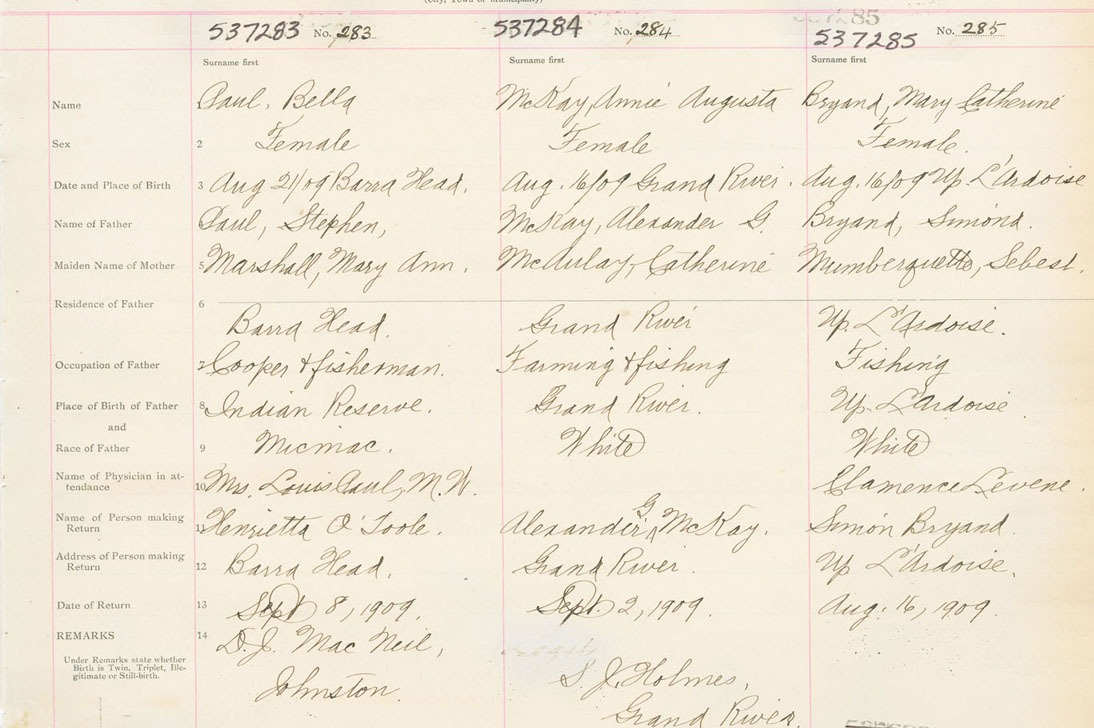 (City, Town or Municipality)
537283 No. 283 537284 No. 284 537285 No. 285
Surname first Surname first Surname first
Name 1 Paul, Bella McKay, Annie Augusta Bryand, Mary Catherine
Sex 2 Female Female Female.
Date and Place of Birth 3 Aug 21/09 Barra Head. Aug. 16/09 Grand River. Aug. 16/09 Up. L'Ardoise
Name of Father 4 Paul, Stephen, McKay, Alexander G. Bryand, Simond.
Maiden Name of Mother 5 Marshall, Mary Ann. McAulay, Catherine Mumberquette, Sebest.
Residence of Father 6
Barra Head. Grand River Up. L'Ardoise.
Occupation of Father 7 Cooper & fisherman. Farming & fishing Fishing
Place of Birth of Father 8 Indian Reserve. Grand River. Up. L'Ardoise
and
Race of Father 9 Micmac. White White
Name of Physician in at-
tendance 10 Mrs. Louis Paul, M.W. Clamence Levene.
Name of Person making
Return 11 Henrietta O'Toole. Alexander G. McKay. Simon Bryand.
Address of Person making
Return 12 Barra Head. Grand River. Up L'Ardoise.
Date of Return 13 Sept 8, 1909. Sept. 2, 1909. Aug. 16, 1909.
REMARKS 14 D.J. MacNeil,
Under Remarks state whether
Birth is Twin, Triplet, Ille-
gitimate or Still-birth.
Johnston. S. J. Holmes,
Grand River.